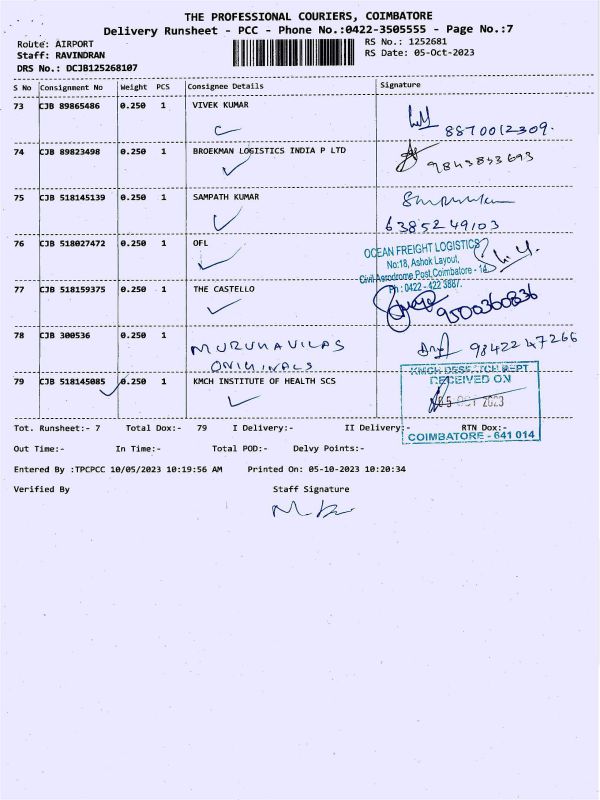 THE PROFESSIONAL COURIERS, COIMBATORE
Delivery Runsheet - PCC - Phone No.:0422-3505555 - Page No.:7
Route: AIRPORT RS No.: 1252681
Staff: RAVINDRAN RS Date: 05-Oct-2023
DRS No.: DCJB125268107
S No Consignment No Weight PCS Consignee Details Signature
73 CJB 89865486 0.250 1 VIVEK KUMAR
8870012309.
74 CJB 89823498 0.250 1 BROEKMAN LOGISTICS INDIA P LTD
9843843693
75 CJB 518145139 0.250 1 SAMPATH KUMAR
6385249103
76 CJB 518027472 0.250 1 OFL
OCEAN FREIGHT LOGISTICS
No:18, Ashok Layout,
Civil Aerodrome Post, Coimbatore - 14.
Ph : 0422 - 422 3887.
77 CJB 518159375 0.250 1 THE CASTELLO
9500360836
78 CJB 300536 0.250 1 MURUHAVILAS
ORIGINALS
9842247266
79 CJB 518145085 0.250 1 KMCH INSTITUTE OF HEALTH SCS
RECEIVED ON
05 OCT 2023
COIMBATORE - 641 014
Tot. Runsheet:- 7 Total Dox:- 79 I Delivery:- II Delivery:- RTN Dox:-
Out Time:- In Time:- Total POD:- Delvy Points:-
Entered By :TPCPCC 10/05/2023 10:19:56 AM Printed On: 05-10-2023 10:20:34
Verified By Staff Signature